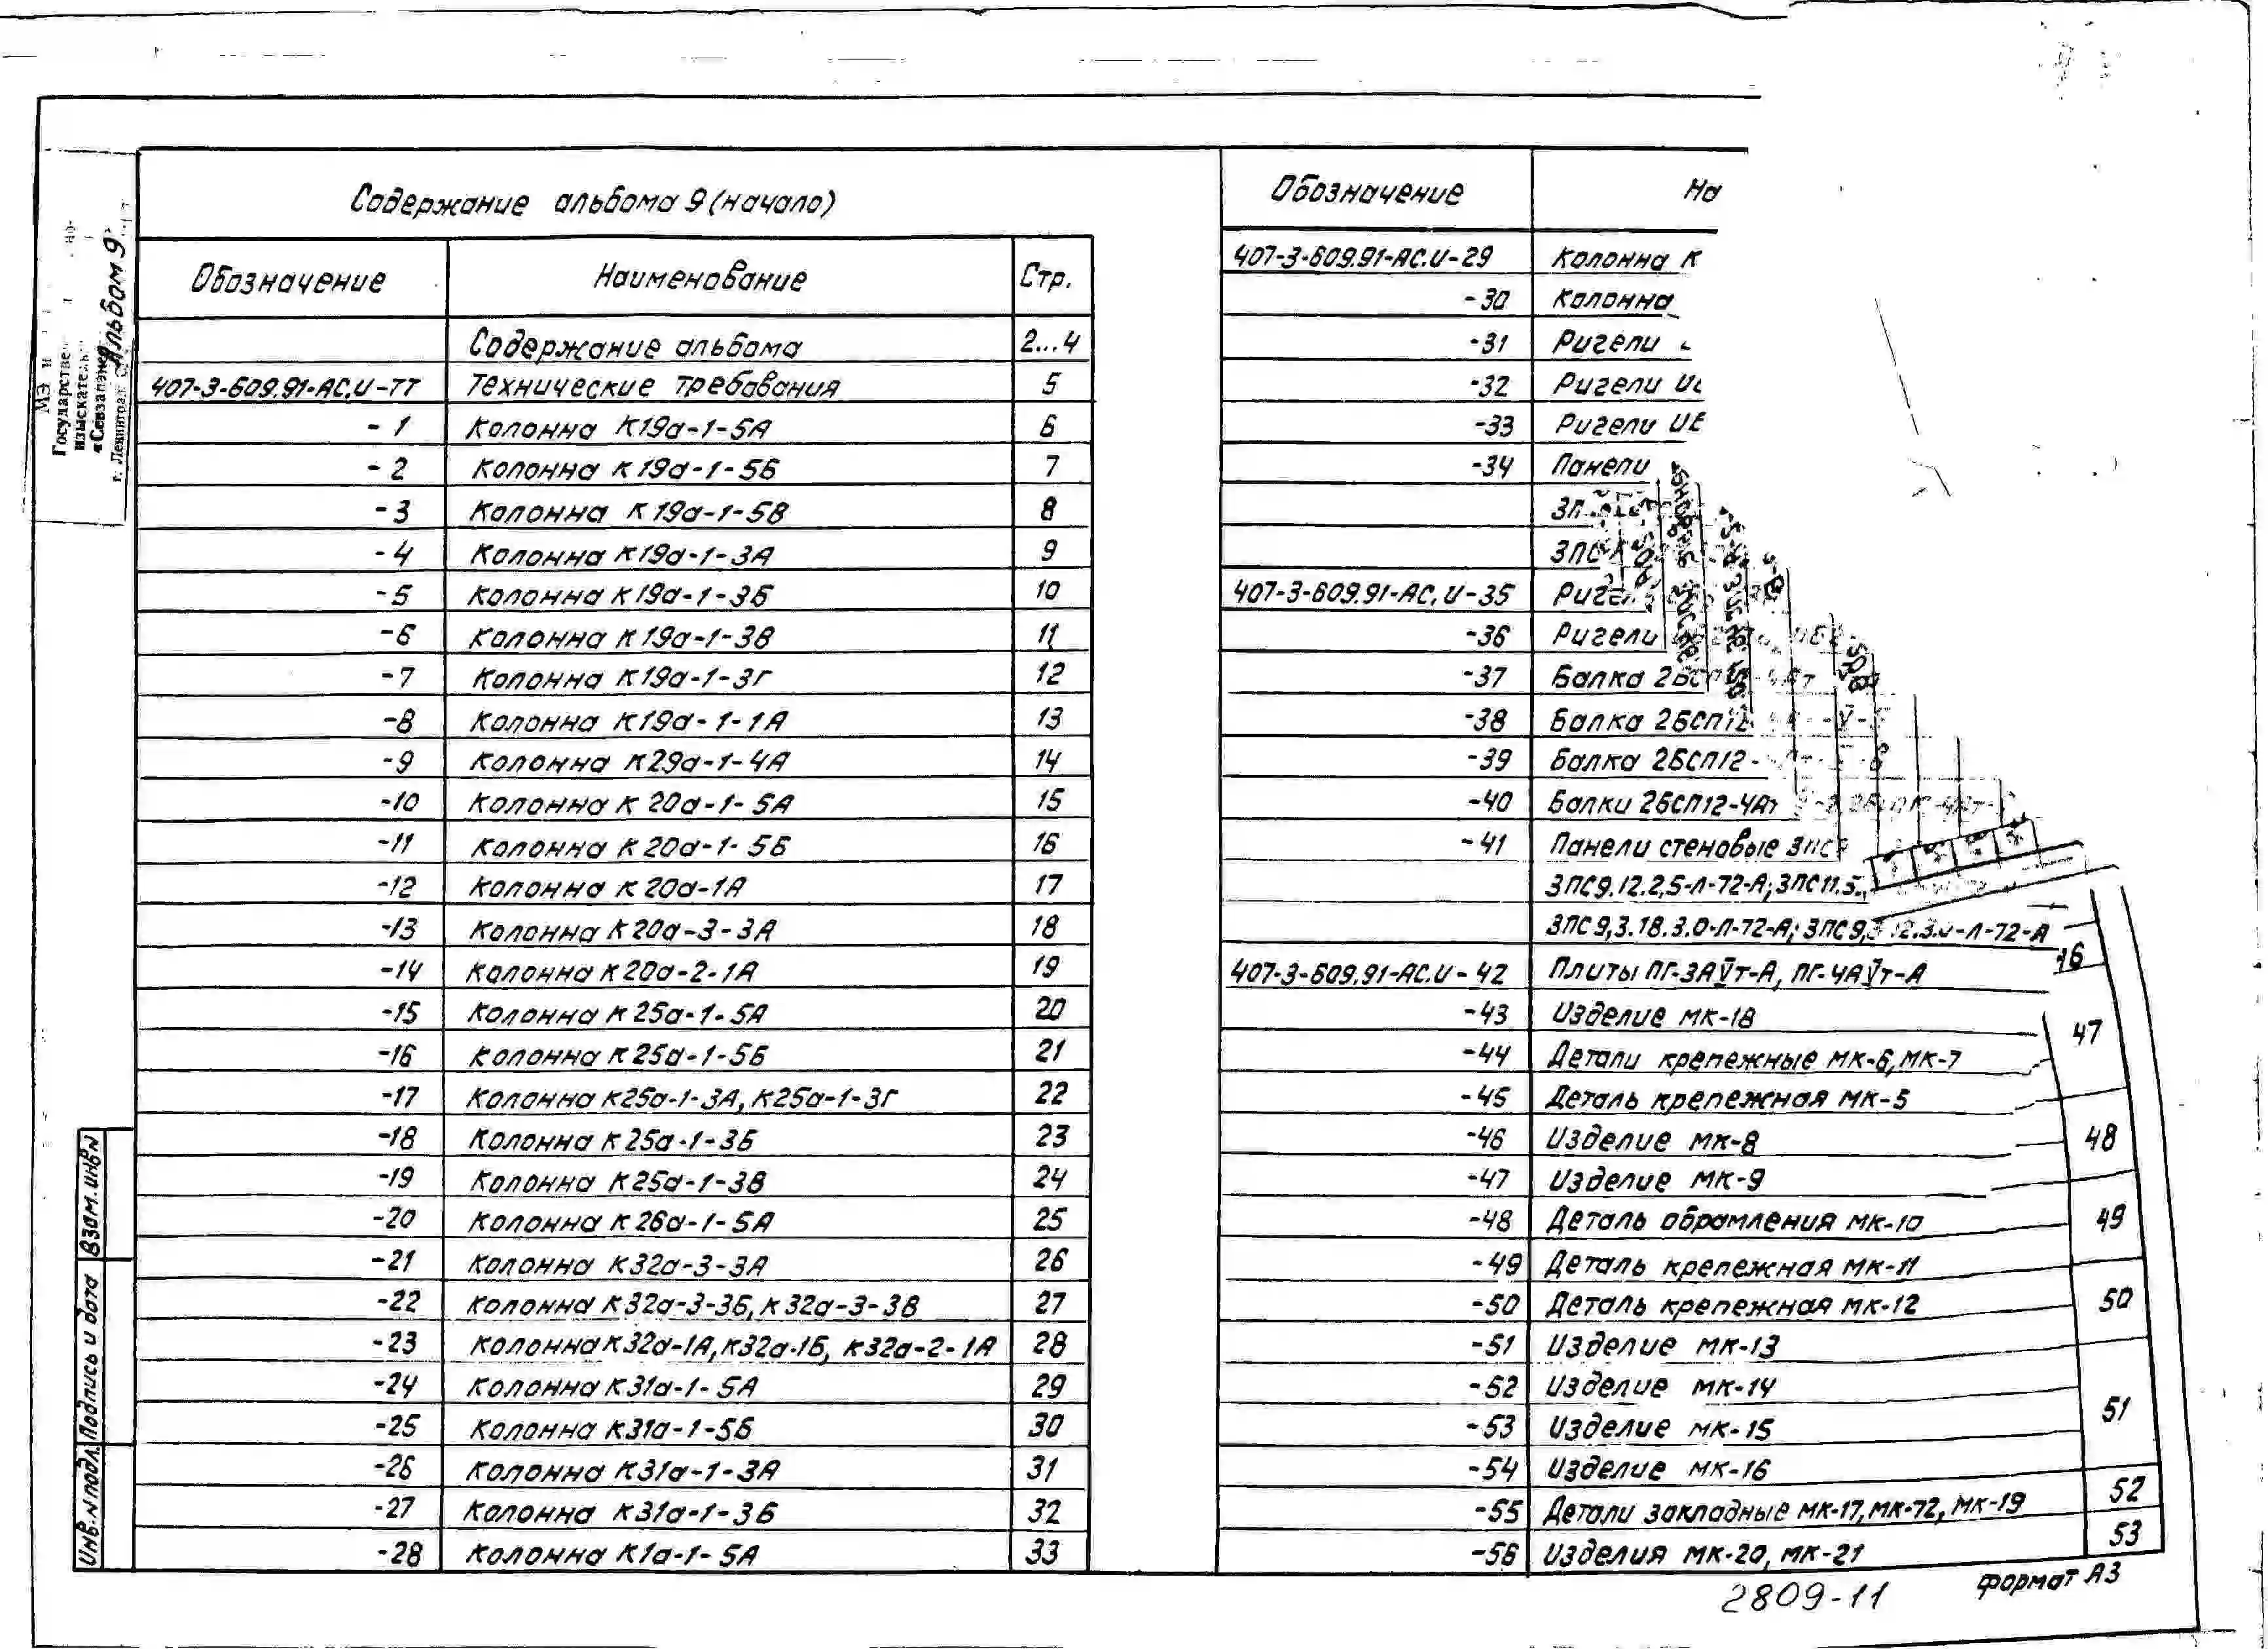 Содержание альбома 9 (начало)
Обозначение Наименование Стр.
Содержание альбома 2...4
407-3-609.91-АС.И-ТТ Технические требования 5
-1 Колонна К19а-1-5А 6
-2 Колонна К19а-1-5Б 7
-3 Колонна К19а-1-5В 8
-4 Колонна К19а-1-3А 9
-5 Колонна К19а-1-3Б 10
-6 Колонна К19а-1-3В 11
-7 Колонна К19а-1-3Г 12
-8 Колонна К19а-1-1А 13
-9 Колонна К29а-1-4А 14
-10 Колонна К20а-1-5А 15
-11 Колонна К20а-1-5Б 16
-12 Колонна К20а-1А 17
-13 Колонна К20а-3-3А 18
-14 Колонна К20а-2-1А 19
-15 Колонна К25а-1-5А 20
-16 Колонна К25а-1-5Б 21
-17 Колонна К25а-1-3А, К25а-1-3Г 22
-18 Колонна К25а-1-3Б 23
-19 Колонна К25а-1-3В 24
-20 Колонна К26а-1-5А 25
-21 Колонна К32а-3-3А 26
-22 Колонна К32а-3-3Б, К32а-3-3В 27
-23 Колонна К32а-1А, К32а-1Б, К32а-2-1А 28
-24 Колонна К31а-1-5А 29
-25 Колонна К31а-1-5Б 30
-26 Колонна К31а-1-3А 31
-27 Колонна К31а-1-3Б 32
-28 Колонна К1а-1-5А 33
Обозначение На
407-3-609.91-АС.И-29 Колонна К
-30 Колонна
-31 Ригели
-32 Ригели
-33 Ригели
-34 Панели
407-3-609.91-АС.И-35
-36 Ригели
-37 Балка
-38 Балка 2БСП12
-39 Балка 2БСП12-
-40 Балки 2БСП12-4Ат
-41 Панели стеновые
3ПС9.12.2,5-Л-72-А; 3ПС11.5.
3ПС9,3.18.3.0-Л-72-А;
407-3-609.91-АС.И-42 Плиты ПГ-3АѴт-А, ПГ-4АѴт-А
-43 Изделие МК-18 47
-44 Детали крепежные МК-6, МК-7
-45 Деталь крепежная МК-5
-46 Изделие МК-8 48
-47 Изделие МК-9
-48 Деталь обрамления МК-10 49
-49 Деталь крепежная МК-11
-50 Деталь крепежная МК-12 50
-51 Изделие МК-13
-52 Изделие МК-14 51
-53 Изделие МК-15
-54 Изделие МК-16
-55 Детали закладные МК-17, МК-72, МК-19 52
-56 Изделия МК-20, МК-21 53
2809-11
формат А3
Альбом 9
г. Ленинград
Взам. инв N
Подпись и дата
Инв. N подл.